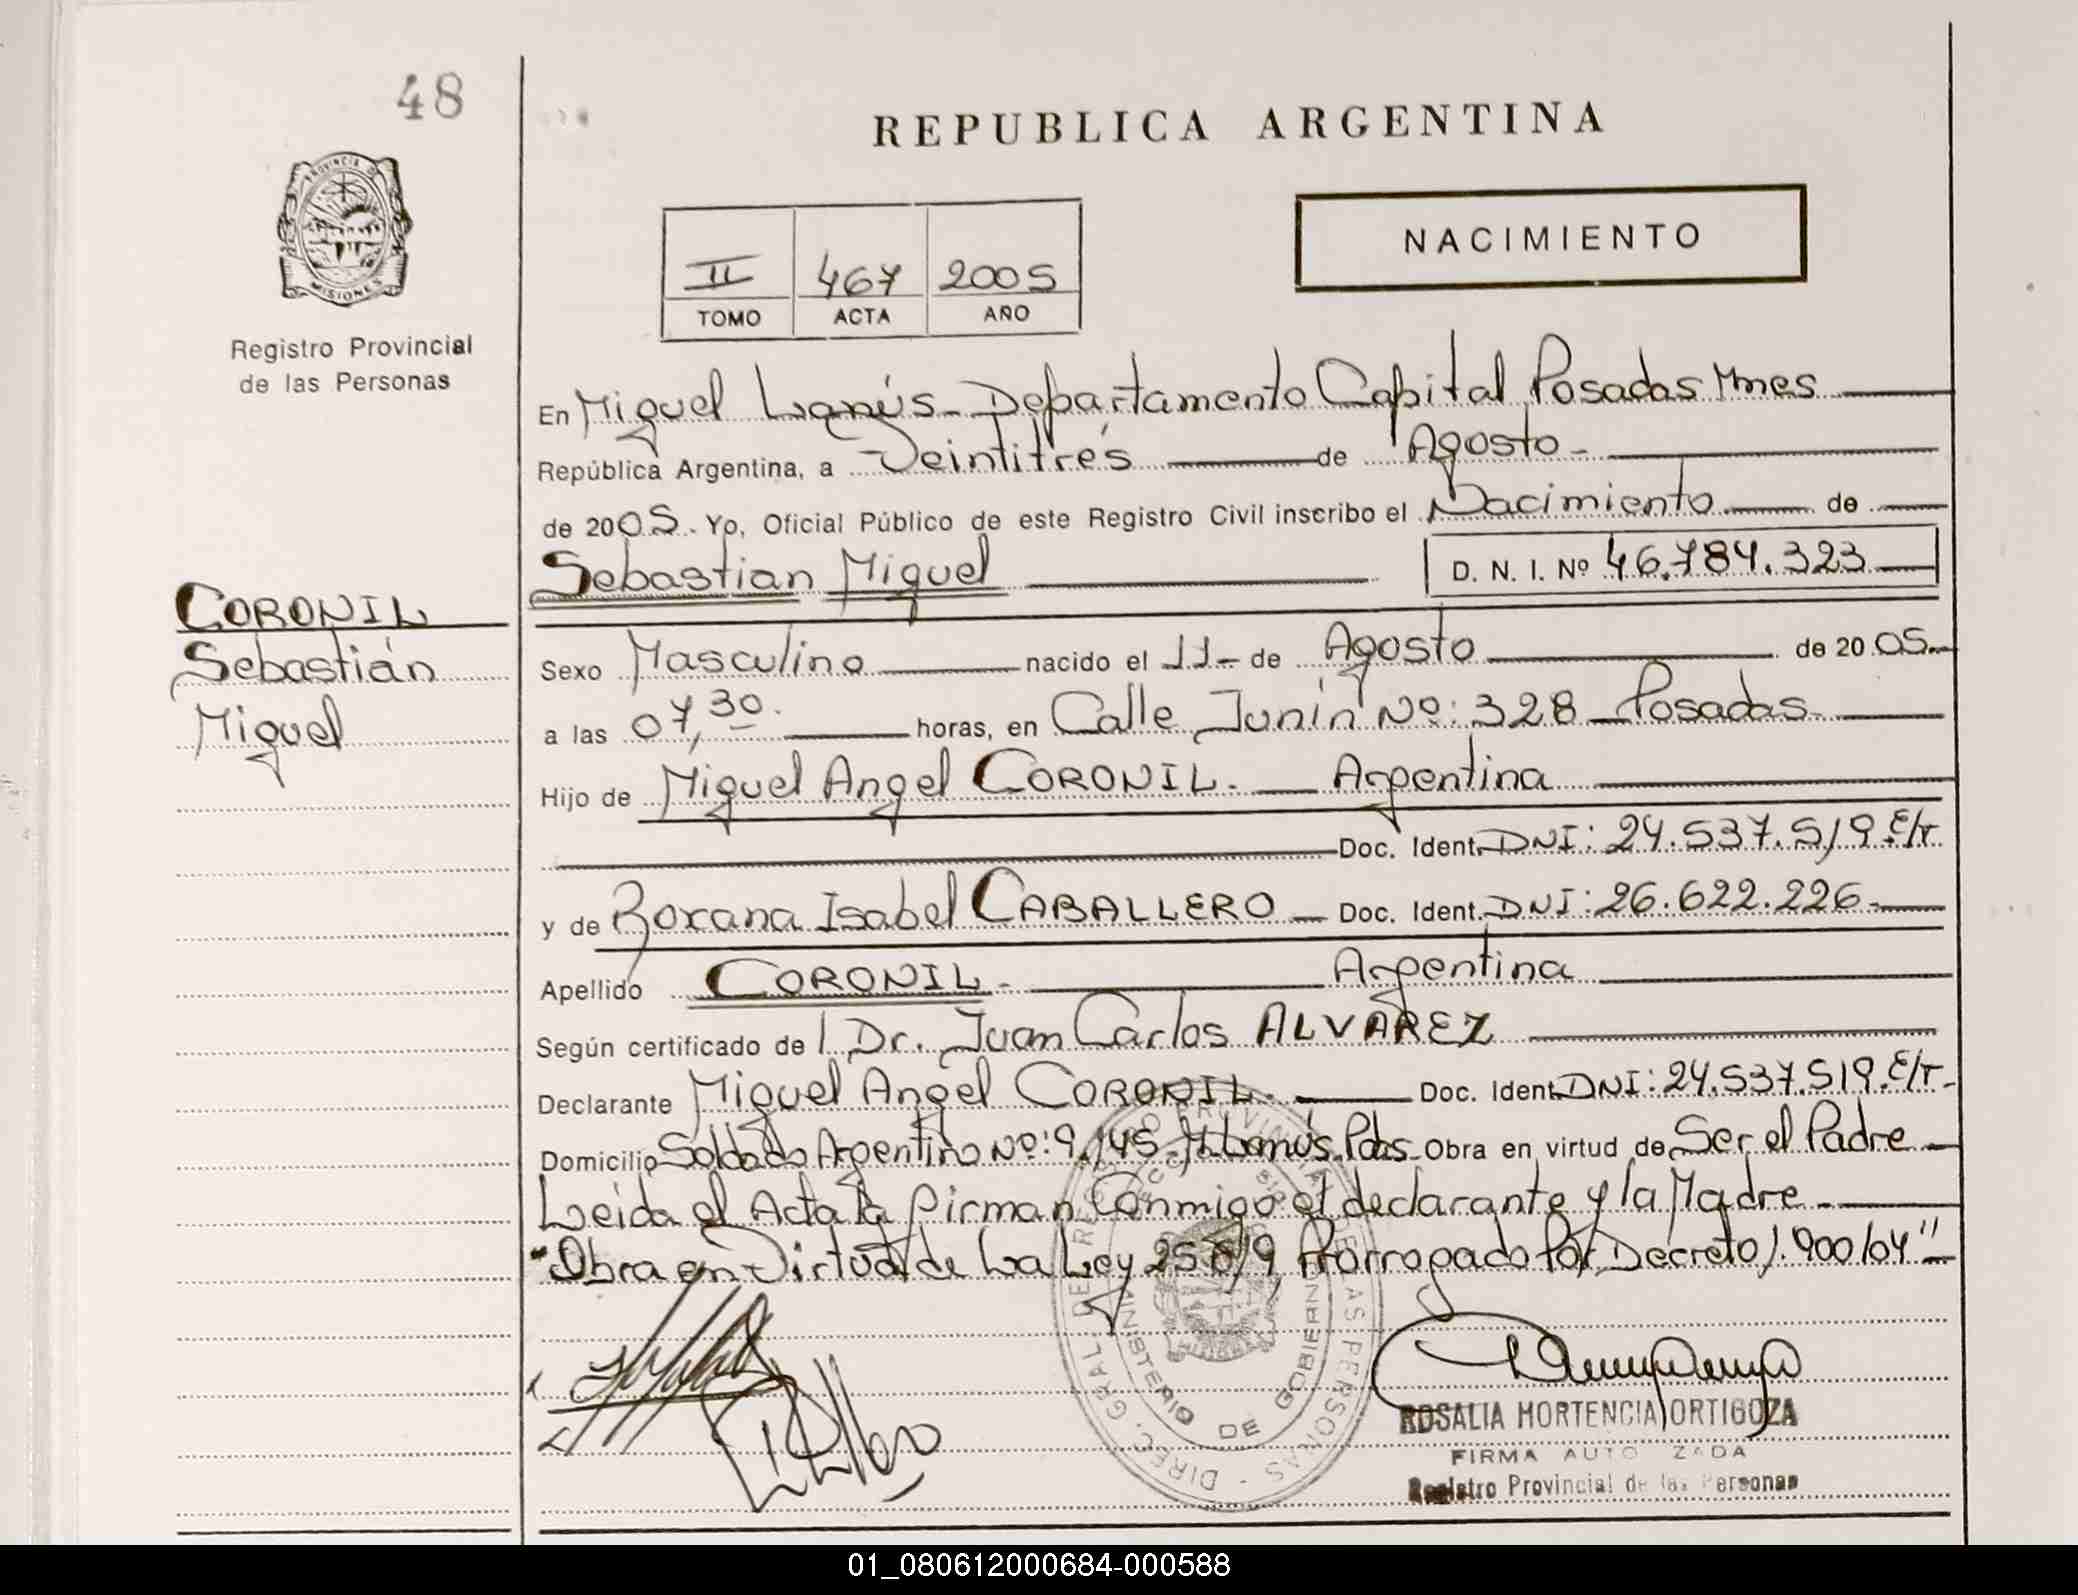 48
REPUBLICA ARGENTINA
PROVINCIA DE
MISIONES
Registro Provincial
de las Personas
NACIMIENTO
II 467 2005
TOMO ACTA AÑO
En Miguel Lanús - Departamento Capital Posadas Mnes
República Argentina, a Veintitrés de Agosto -
de 2005. Yo, Oficial Público de este Registro Civil inscribo el Nacimiento de
Sebastian Miguel D. N. I. Nº 46.784.323
CORONIL
Sebastián
Miguel
Sexo Masculino nacido el 11 - de Agosto de 2005.
a las 07,30. horas, en Calle Junín Nº: 328 - Posadas.
Hijo de Miguel Angel CORONIL. - Argentina
Doc. Ident. DNI: 24.537.519.E/T.
y de Roxana Isabel CABALLERO - Doc. Ident. DNI: 26.622.226.
Apellido CORONIL - Argentina
Según certificado de / Dr. Juan Carlos ALVAREZ
Declarante Miguel Angel CORONIL. Doc. Ident. DNI: 24.537.519.E/T-
Domicilio Soldado Argentino Nº: 9.145 - M. Lanús. Pdas - Obra en virtud de Ser el Padre
Leída el Acta la firman Conmigo el declarante y la Madre -
"Obra en Virtud de La Ley 25.819 Prorrogado Por Decreto 1.900/04"
DIREC. GRAL. DE REGISTRO PROVINCIAL DE LAS PERSONAS
MINISTERIO DE GOBIERNO
ROSALIA HORTENCIA ORTIGOZA
FIRMA AUTO ZADA
Registro Provincial de las Personas
01_080612000684-000588